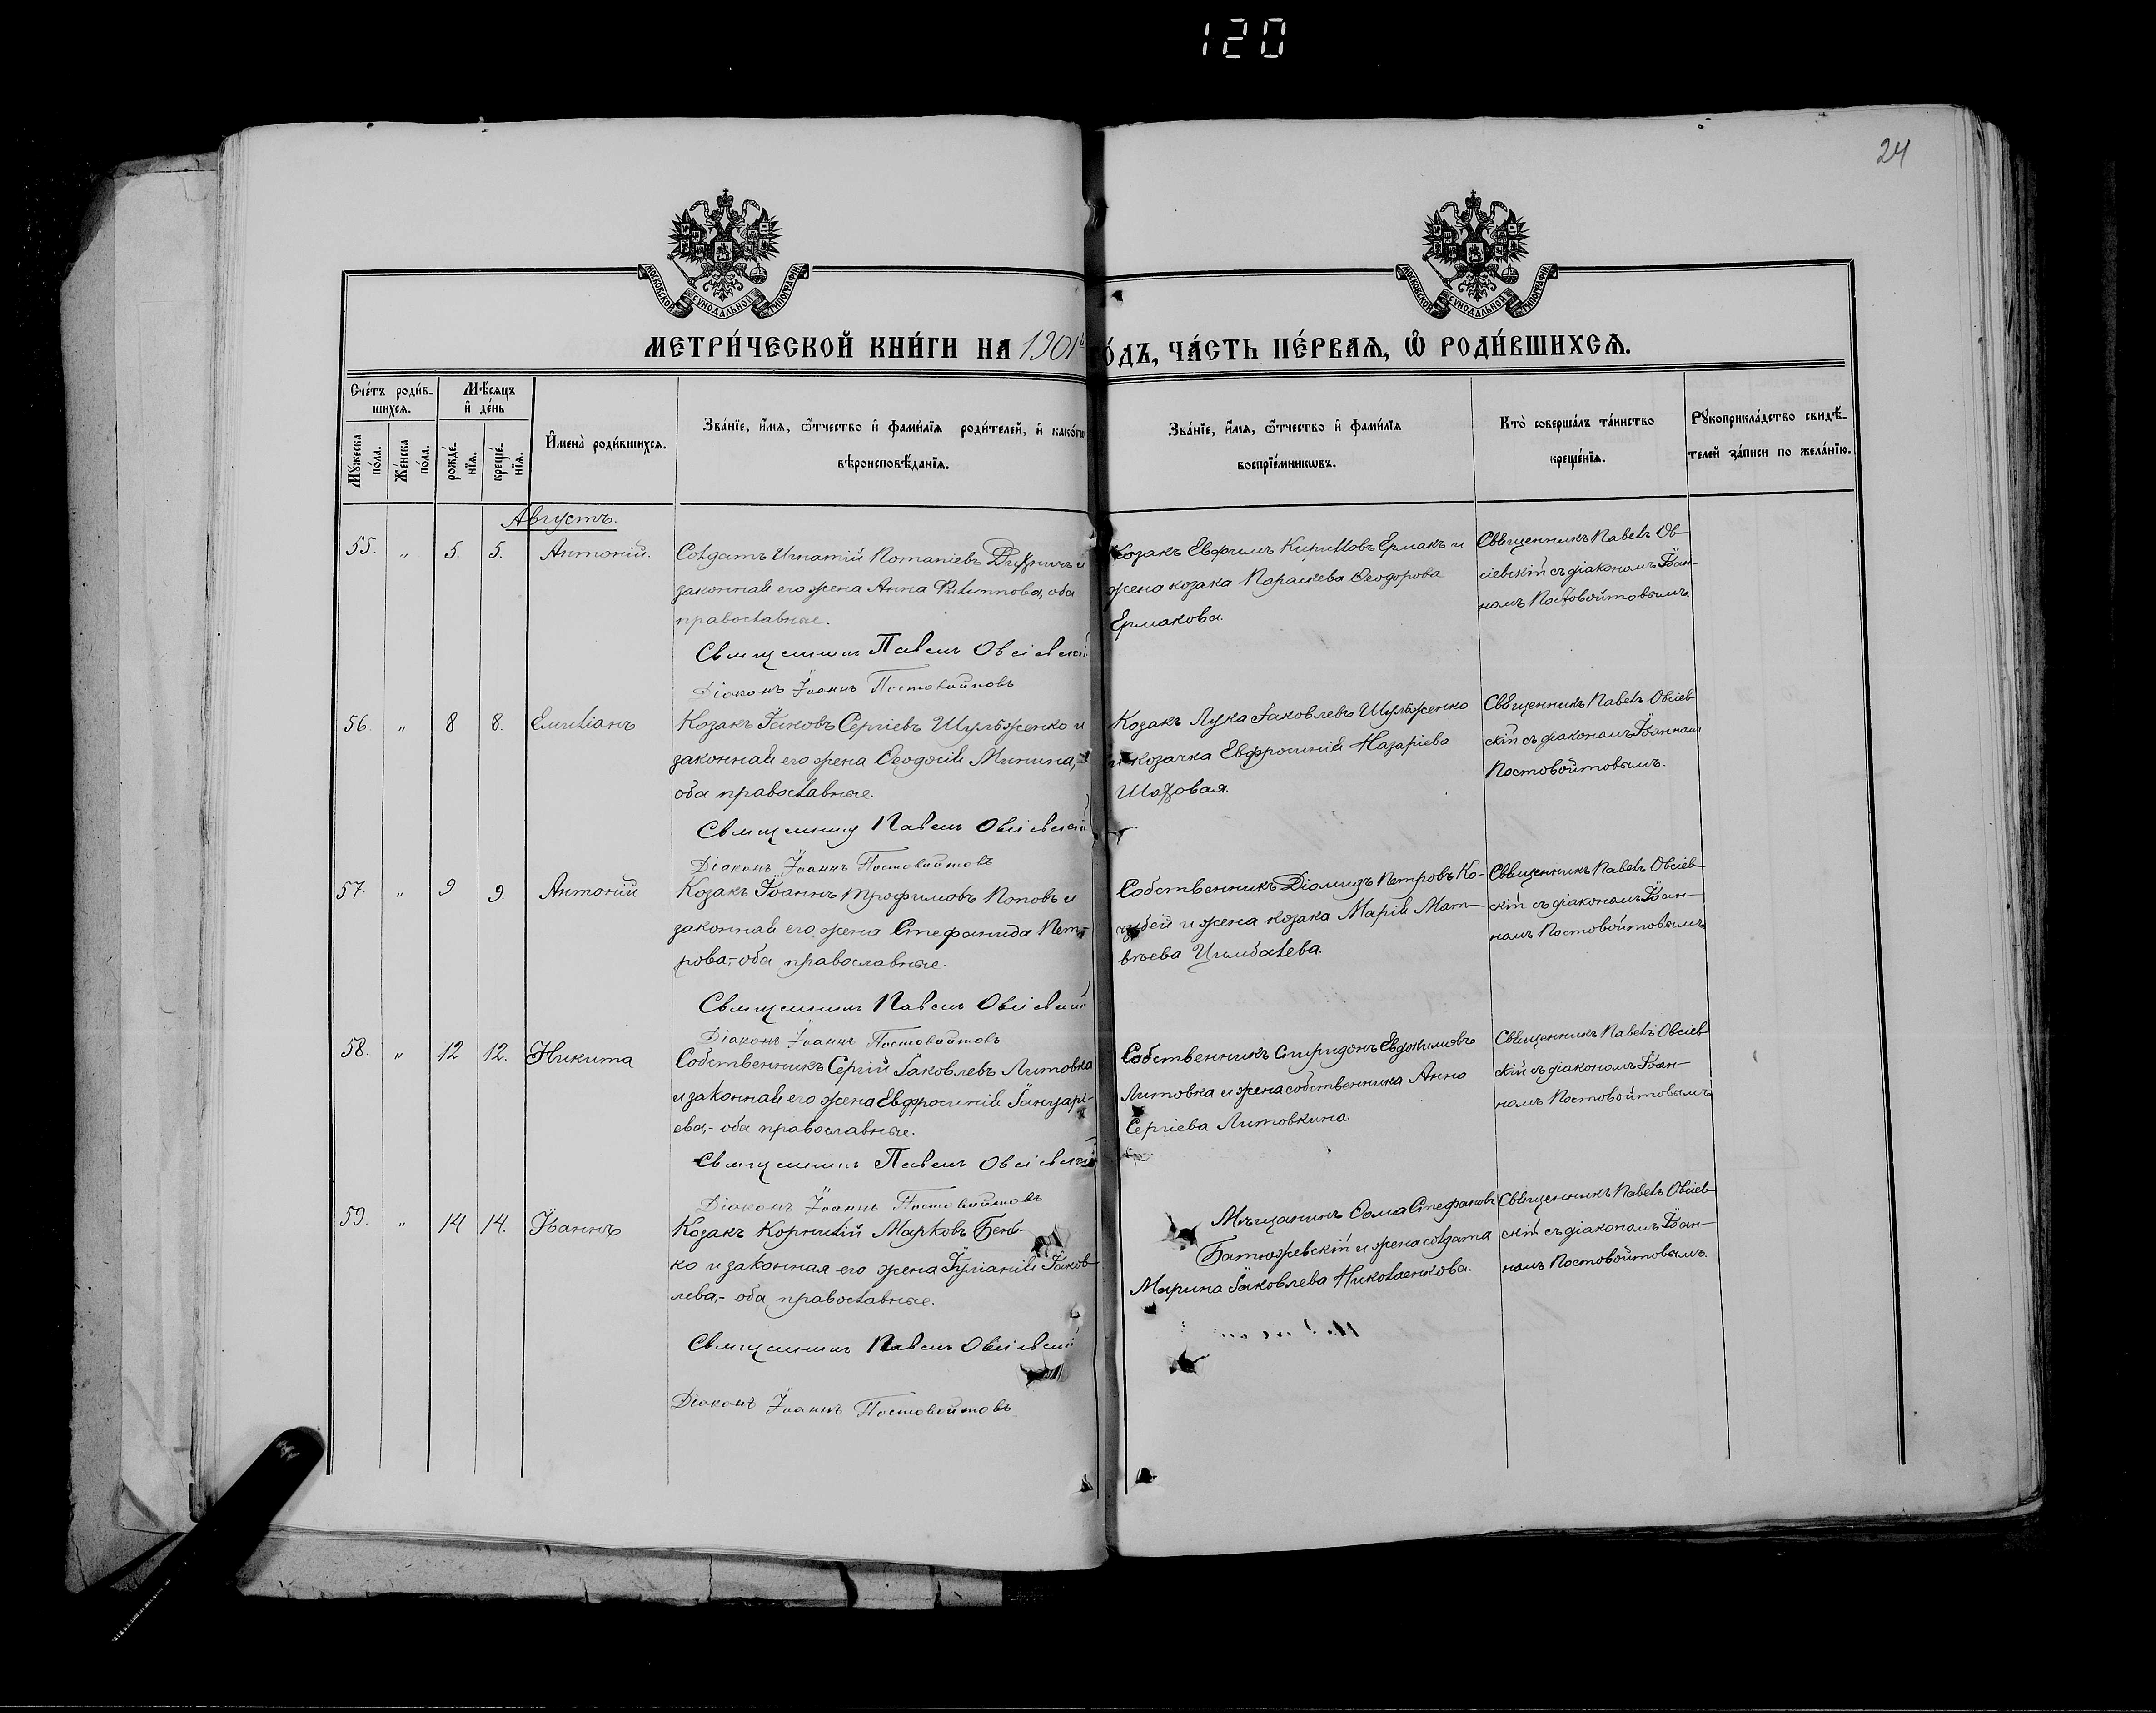 120
24
МОСКОВСКОЙ СѴНОДАЛЬНОЙ ТИПОГРАФІИ
МОСКОВСКОЙ СѴНОДАЛЬНОЙ ТИПОГРАФІИ
МЕТРИ́ЧЕСКОЙ КНИ́ГИ НА 1901й ГО́ДЪ, ЧА́СТЬ ПЕ́РВАѦ, Ѡ РОДИ́ВШИХСѦ.
Сче́тъ роди́вшихсѧ.
Мꙋ́жеска по́ла.
Же́нска по́ла.
Мѣ́сяцъ и҆ де́нь
рожде́нїѧ.
креще́нїѧ.
И҆мена̀ роди́вшихсѧ.
Зва́нїе, и҆́мѧ, ѻ҆́тчество и҆ фами́лїѧ роди́телей, и҆ како́гѡ
вѣроисповѣ́данїѧ.
Зва́нїе, и҆́мѧ, ѻ҆́тчество и҆ фами́лїѧ
воспрїе́мникѡвъ.
Кто̀ соверша́лъ та́инство
креще́нїѧ.
Рꙋкоприкла́дство свидѣ́-
телей за́писи по жела́нїю.
Августъ.
55. " 5. 5. Антоній.
Солдатъ Игнатій Потапіевъ и
законная его жена Анна Филиппова, оба
православные.
Священникъ Павелъ Овсіевскій
Діаконъ Іоаннъ Постовойтовъ
Козакъ Евфимъ Кирилловъ Ермакъ и
жена козака Параскева Ѳеодорова
Ермакова.
Священникъ Павелъ Ов-
сіевскій съ діакономъ Іоан-
номъ Постовойтовымъ.
56. " 8 8. Емиліанъ
Козакъ Іаковъ Сергіевъ Шульженко и
законная его жена Ѳеодосія Минина,
оба православные.
Священникъ Павелъ Овсіевскій
Діаконъ Іоаннъ Постовойтовъ
Козакъ Лука Іаковлевъ Шульженко
и козачка Евфросинія Назаріева
Священникъ Павелъ Овсіев-
скій съ діакономъ Іоанномъ
Постовойтовымъ.
57. " 9 9. Антоній
Козакъ Іоаннъ Трофимовъ Поповъ и
законная его жена Стефанида Пет-
рова,- оба православные.
Священникъ Павелъ Овсіевскій
Діаконъ Іоаннъ Постовойтовъ
Собственникъ Діомидъ Петровъ Ко-
чубей и жена козака Марія Мат-
вѣева Цимбалева.
Священникъ Павелъ Овсіев-
скій съ діакономъ Іоан-
номъ Постовойтовымъ
58. " 12 12. Никита
Собственникъ Сергій Іаковлевъ Литовка
и законная его жена Евфросинія Іануарі-
ева,- оба православные.
Священникъ Павелъ Овсіевскій
Діаконъ Іоаннъ Постовойтовъ
Собственникъ Спиридонъ Евдокимовъ
Литовка и жена собственника Анна
Сергіева Литовкина
Священникъ Павелъ Овсіев-
скій съ діакономъ Іоан-
номъ Постовойтовымъ
59. " 14 14. Іоаннъ
Козакъ Корнилій Марковъ
ко и законная его жена Іуліанія Іаков-
лева,- оба православные.
Священникъ Павелъ Овсіевскій
Діаконъ Іоаннъ Постовойтовъ
Мѣщанинъ Ѳома Стефановъ
и жена солдата
Марина Іаковлева Николаенкова.
Священникъ Павелъ Овсіев-
скій съ діакономъ Іоан-
номъ Постовойтовымъ.